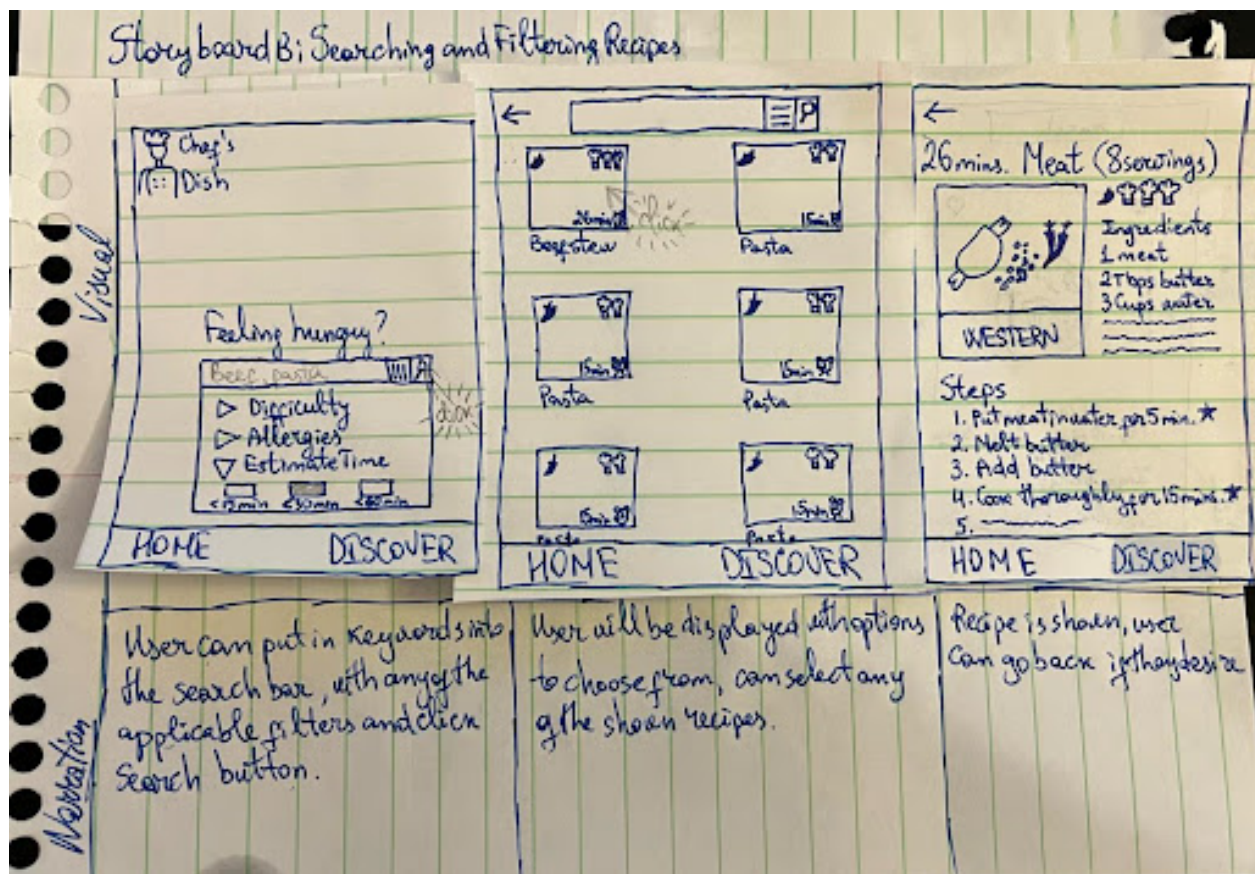 Storyboard B: Searching and Filtering Recipes
Visual
Chef's
Dish
Feeling hungry?
Beef, pasta
click
Difficulty
Allergies
Estimate Time
<15min <30min <60min
HOME DISCOVER
26min
click
15min
Beefstew
Pasta
15min
15min
Pasta
Pasta
15min
15min
Pasta
Pasta
HOME DISCOVER
26mins. Meat (8servings)
Ingredients
1 meat
2 Tbps butter
3 Cups water
WESTERN
Steps
1. Put meat in water for 5 min.
2. Melt butter
3. Add butter
4. Cook thoroughly for 15mins.
5.
HOME DISCOVER
Narration
User can put in keywords into
the search bar, with any of the
applicable filters and click
Search button.
User will be displayed with options
to choose from, can select any
of the shown recipes.
Recipe is shown, user
can go back if they desire